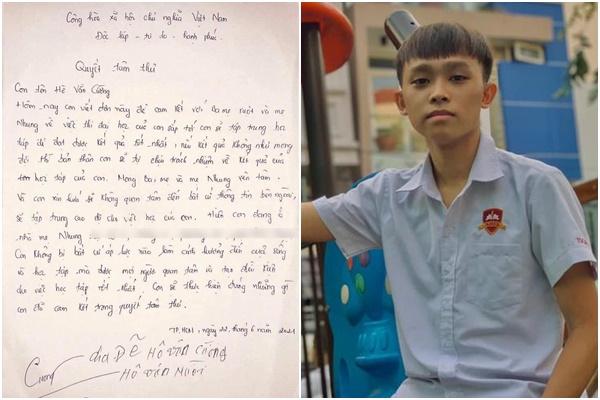 Cộng hòa xã hội chủ nghĩa Việt Nam
Độc lập - tự do - hạnh phúc.
Quyết tâm thư
Con tên Hồ Văn Cường
Hôm nay con viết đơn này để cam kết với ba mẹ ruột và mẹ
Nhung về việc thi đại học của con sắp tới con sẽ tập trung học
tập để đạt được kết quả tốt nhất, nếu kết quả không như mong
đợi thì bản thân con sẽ tự chịu trách nhiệm về kết quả của
học tập của con. Mong ba, mẹ và mẹ Nhung yên tâm.
Và con xin hứa sẽ không quan tâm đến bất cứ thông tin bên ngoài,
sẽ tập trung cao độ cho việc học của con. Hiện con đang ở
nhà mẹ Nhung
Con không bị bất cứ áp lực nào làm ảnh hưởng đến cuộc sống
và học tập mà được mọi người quan tâm và tạo điều kiện
cho việc học tập tốt nhất. Con sẽ thực hiện đúng những gì
con đã cam kết trong quyết tâm thư.
TP.HCM, ngày 22 tháng 6 năm 2021
cha Đẽ Hồ văn Cường
Cương Hồ văn Mười